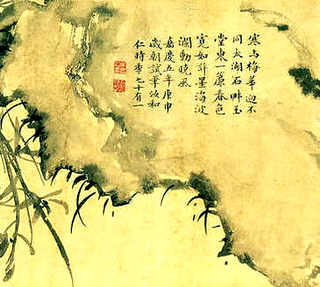 寒山梅華迥不
同太湖石畔玉
堂東一簾春色
寬如許墨海波
瀾動晚風
嘉慶五年庚申
歲朝試筆
時季七十有一